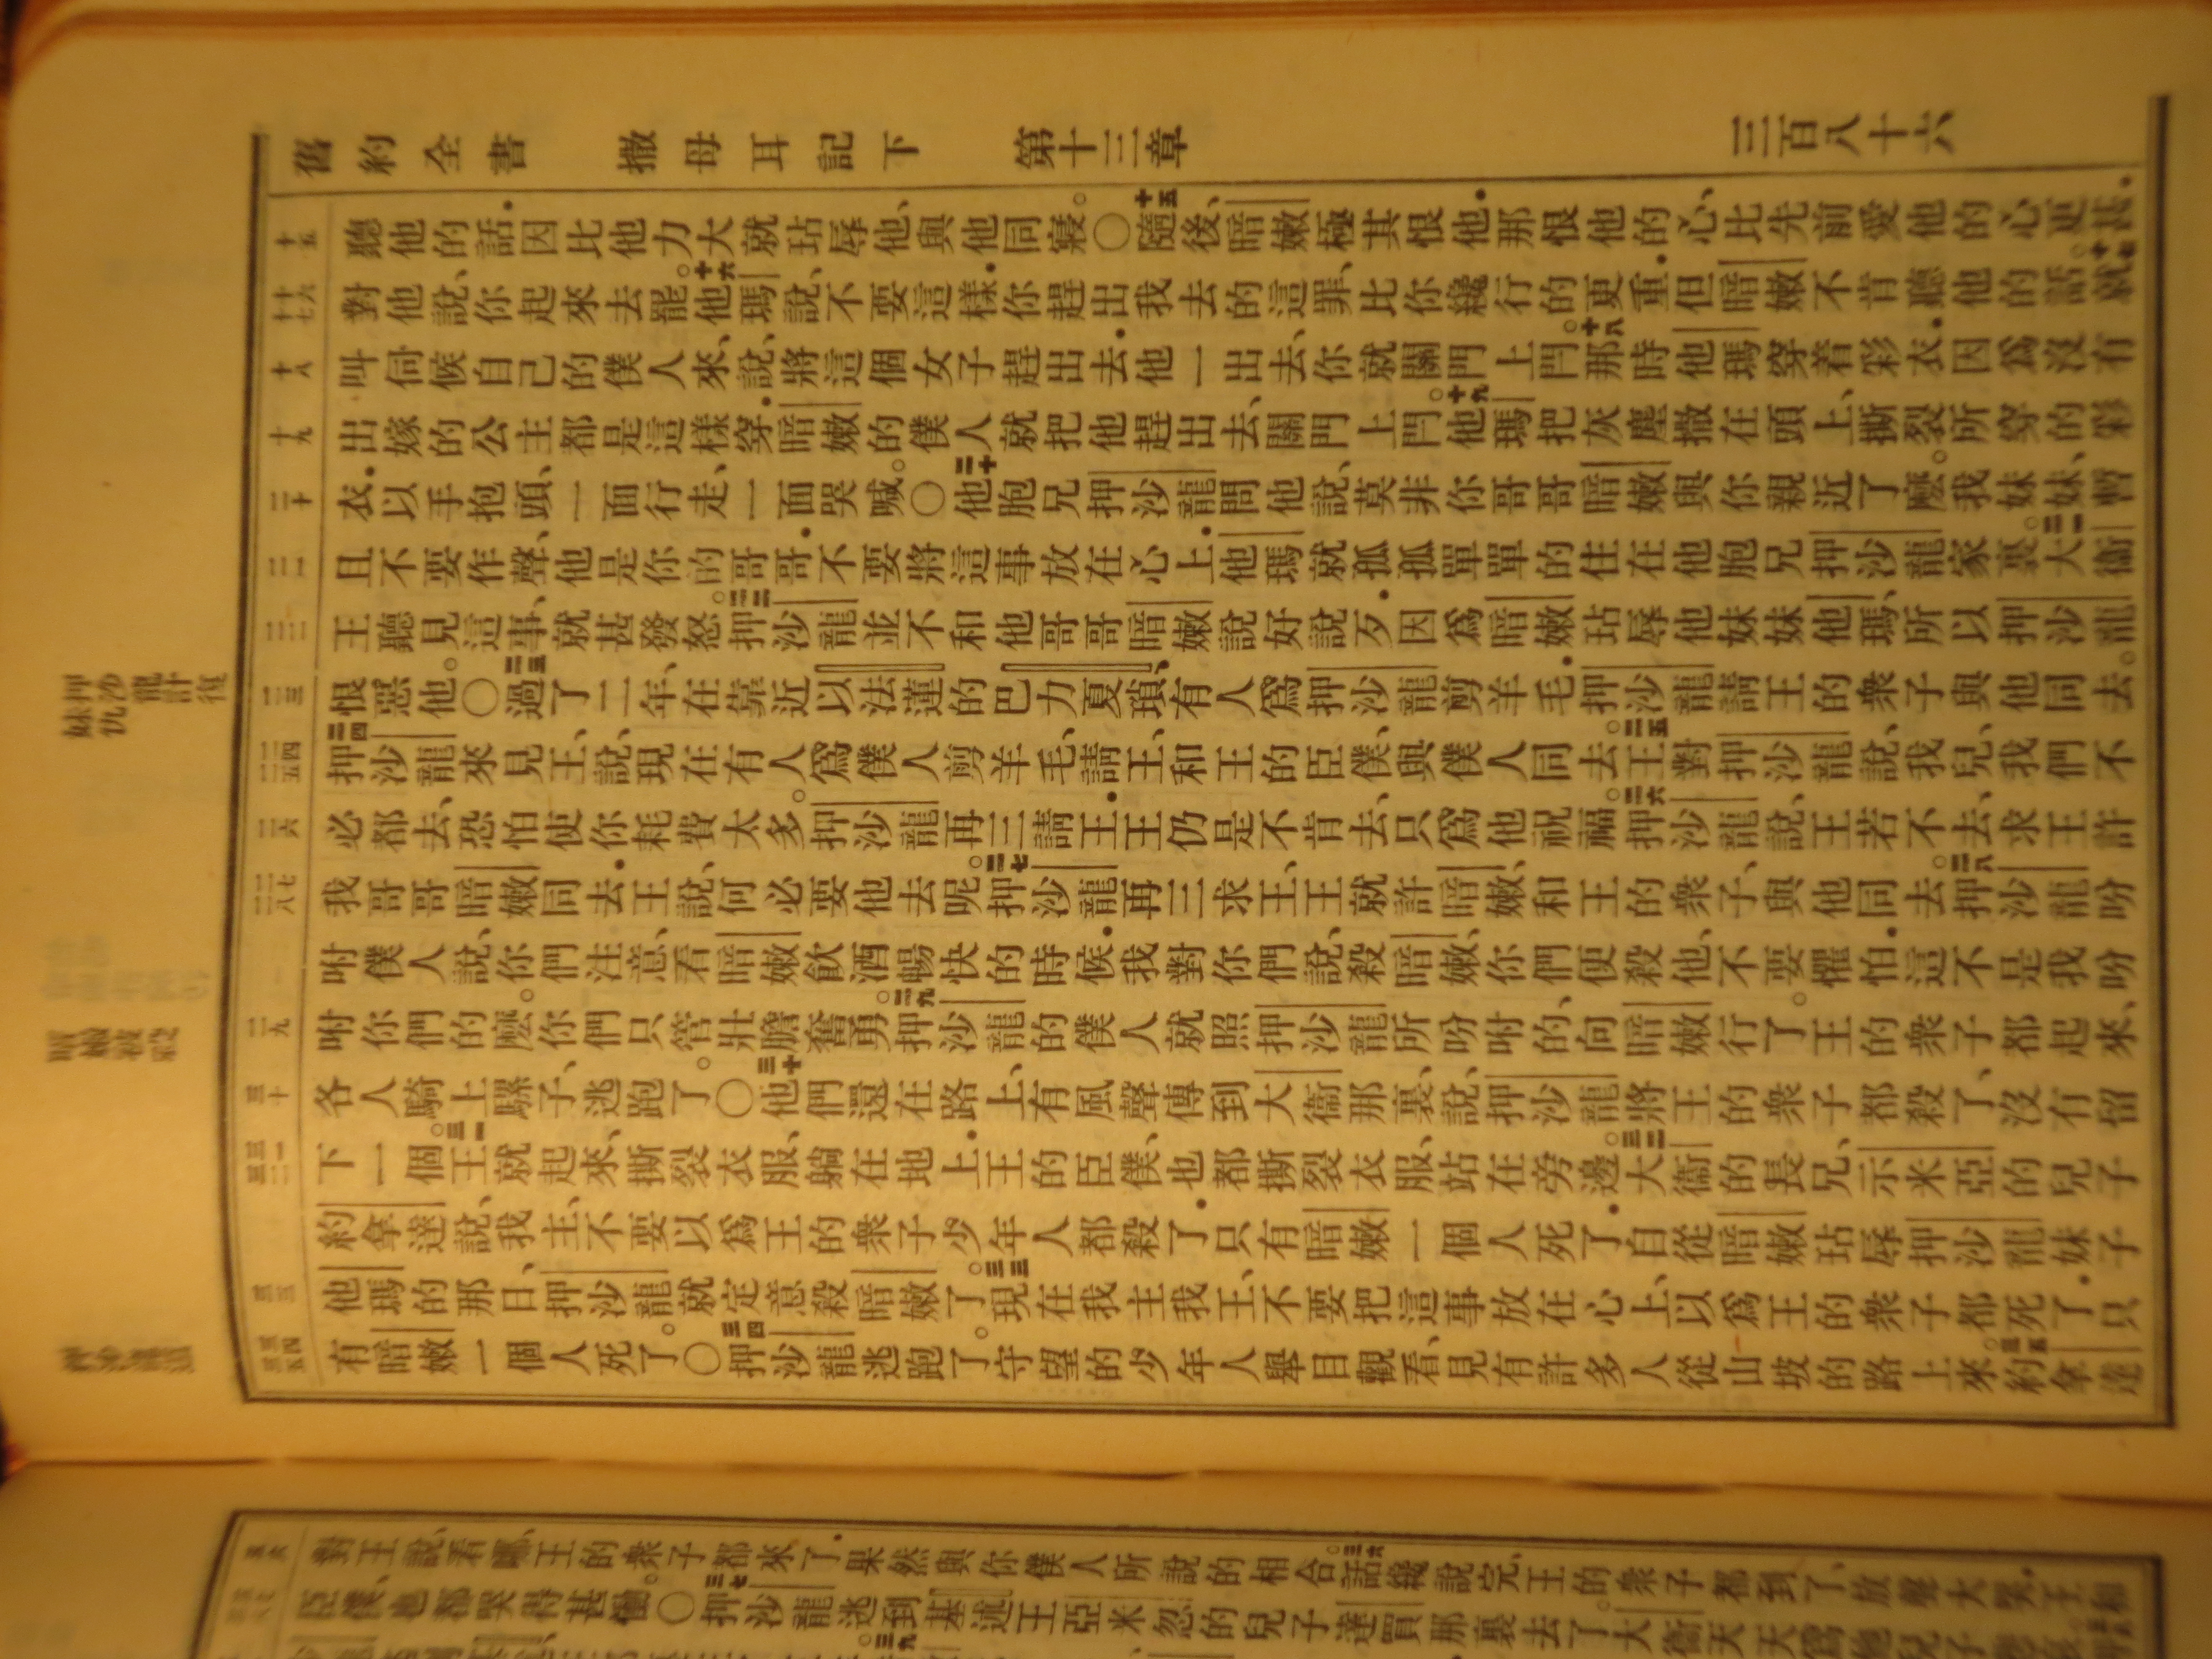 舊約全書 撒母耳記下 第十三章 三百八十六
十五
聽他的話．因比他力大、就玷辱他、與他同寢。〇十五隨後、暗嫩極其恨他．那恨他的心、比先前愛他的心更甚．
十六 十七
對他說、你起來去罷。十六他瑪說、不要這樣．你趕出我去的這罪、比你纔行的更重．但暗嫩不肯聽他的話。十七就
十八
叫伺候自己的僕人來、說、將這個女子趕出去．他一出去、你就關門上閂。十八那時他瑪穿着彩衣．因爲沒有
十九
出嫁的公主都是這樣穿．暗嫩的僕人就把他趕出去、關門上閂。十九他瑪把灰塵撒在頭上、撕裂所穿的彩
二十
衣．以手抱頭、一面行走、一面哭喊。〇二十他胞兄押沙龍問他說、莫非你哥哥暗嫩與你親近了麽。我妹妹、暫
二一
且不要作聲、他是你的哥哥．不要將這事放在心上．他瑪就孤孤單單的住在他胞兄押沙龍家裏。二一大衞
二二
王聽見這事、就甚發怒。二二押沙龍並不和他哥哥暗嫩說好說歹．因爲暗嫩玷辱他妹妹他瑪、所以押沙龍
二三
恨惡他。〇二三過了二年、在靠近以法蓮的巴力夏瑣、有人爲押沙龍剪羊毛．押沙龍請王的衆子與他同去。
押沙龍計復妹仇
二四 二五
二四押沙龍來見王、說、現在有人爲僕人剪羊毛、請王、和王的臣僕、與僕人同去。二五王對押沙龍說、我兒、我們不
二六
必都去、恐怕使你耗費太多。押沙龍再三請王．王仍是不肯去、只爲他祝福。二六押沙龍說、王若不去、求王許
二七 二八
我哥哥暗嫩同去．王說、何必要他去呢。二七押沙龍再三求王、王就許暗嫩、和王的衆子、與他同去。二八押沙龍吩
咐僕人說、你們注意、看暗嫩飮酒暢快的時候．我對你們說、殺暗嫩、你們便殺他、不要懼怕．這不是我吩
二九
咐你們的麽。你們只管壯膽奮勇。二九押沙龍的僕人就照押沙龍所吩咐的、向暗嫩行了。王的衆子都起來、
暗嫩被殺
三十
各人騎上騾子、逃跑了。〇三十他們還在路上、有風聲傳到大衞那裏、說、押沙龍將王的衆子都殺了、沒有留
三一 三二
下一個。三一王就起來、撕裂衣服、躺在地上．王的臣僕、也都撕裂衣服、站在旁邊。三二大衞的長兄、示米亞的兒子
約拿達說、我主、不要以爲王的衆子少年人都殺了．只有暗嫩一個人死了．自從暗嫩玷辱押沙龍妹子
三三
他瑪的那日、押沙龍就定意殺暗嫩了。三三現在我主我王、不要把這事放在心上、以爲王的衆子都死了．只
三四 三五
有暗嫩一個人死了。〇三四押沙龍逃跑了。守望的少年人舉目觀看、見有許多人從山坡的路上來。三五約拿達
對王說、看哪、王的衆子都來了．果然與你僕人所說的相合。三六話纔說完、王的衆子都到了、放聲大哭．王和
臣僕、也都哭得甚慟。〇三七押沙龍逃到基述王亞米忽的兒子達買那裏去了。